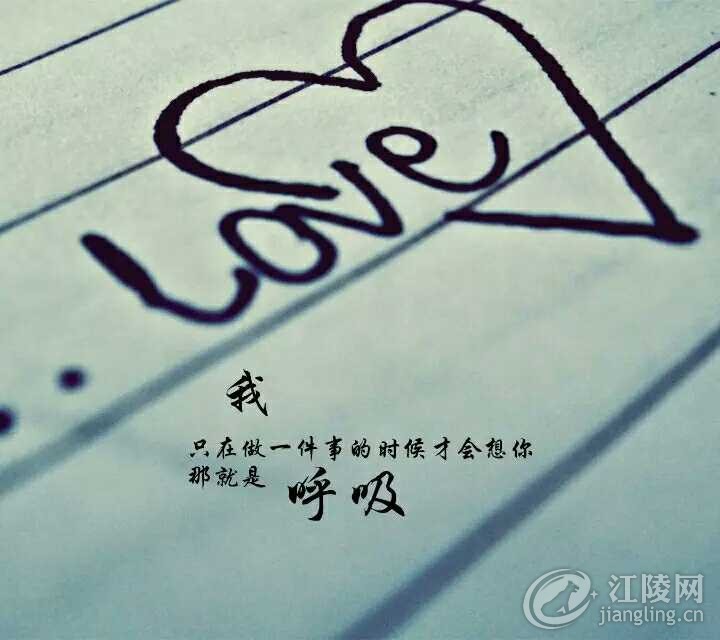 Love
我
只在做一件事的时候才会想你
那就是 呼吸
江陵网
jiangling.cn